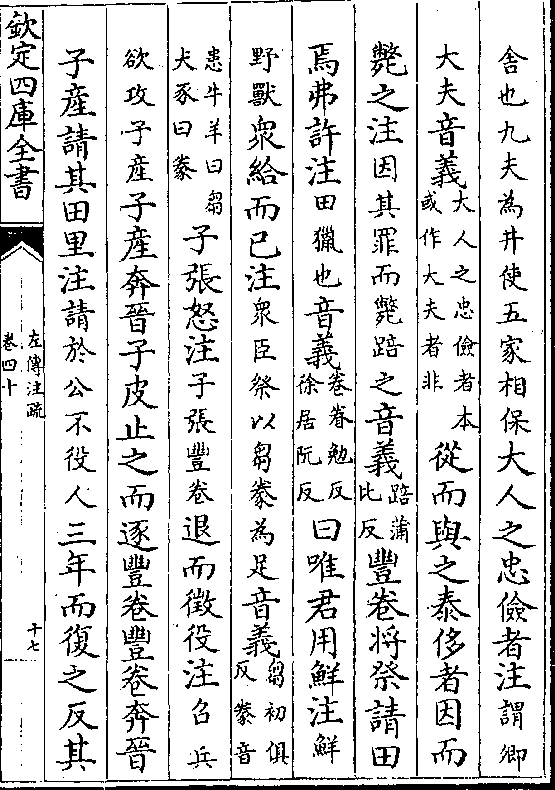 舎也九夫為井使五家相保大人之忠儉者注謂卿
大夫音義大人之忠儉者本或作大夫者非從而與之泰侈者因而
斃之注因其罪而斃踣之音義踣蒲比反豐卷將祭請田
焉弗許注田獵也音義卷眷勉反徐居阮反曰唯君用鮮注鮮
野獸衆給而已注衆臣祭以芻豢為足音義芻初俱反豢音
患牛羊曰芻犬豕曰豢子張怒注子張豐卷退而徴役注召兵
欲攻子産子産奔晉子皮止之而逐豐卷豐卷奔晉
子産請其田里注請於公不役人三年而復之反其
欽定四庫全書
左傳注疏
卷四十
十七